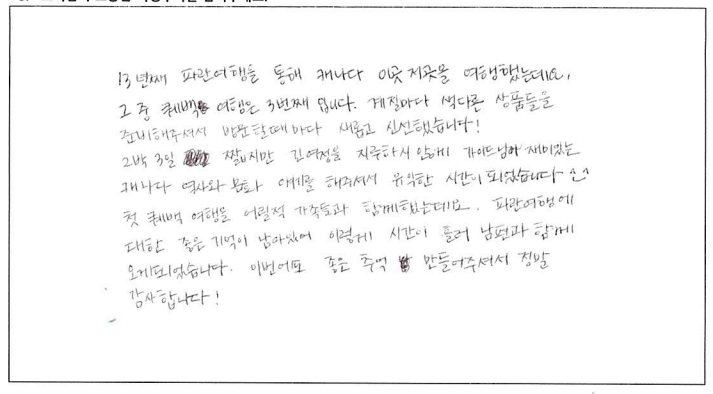 13년째 파란여행을 통해 캐나다 이곳저곳을 여행했는데요,
그 중 퀘백 여행은 3번째 입니다. 계절마다 색다른 상품들을
준비해주셔서 방문할때마다 새롭고 신선했습니다!
2박 3일 짧지만 긴여정을 지루하지 않게 가이드님이 재미있는
캐나다 역사와 문화 얘기를 해주셔서 유익한 시간이 되었습니다 ^^
첫 퀘백 여행을 어릴적 가족들과 함께했는데요. 파란여행에
대한 좋은 기억이 남아있어 이렇게 시간이 흘러 남편과 함께
오게되었습니다. 이번에도 좋은 추억 만들어주셔서 정말
감사합니다!